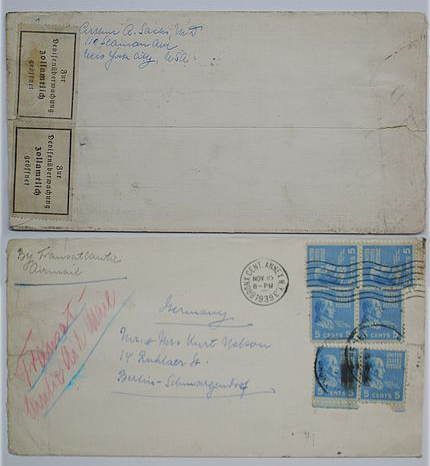 Zur
Devisenüberwachung
Zollamtlich
geöffnet
Zur
Devisenüberwachung
Zollamtlich
geöffnet
A. Sachs, MD
110 Seaman Ave
New York City, USA
By Transatlantic
Airmail
Transatlantic Air Mail
BRONX CENT. ANNEX N.Y.
NOV 10
8-PM
1939
Germany
Mr. & Mrs Kurt Nelson
14 Ruhlaer St.
Berlin-Schmargendorf
5 CENTS 5
5 CENTS 5
5 CENTS 5